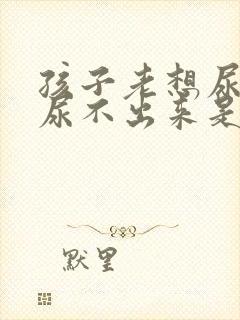 孩子老想尿
尿不出来是
默里